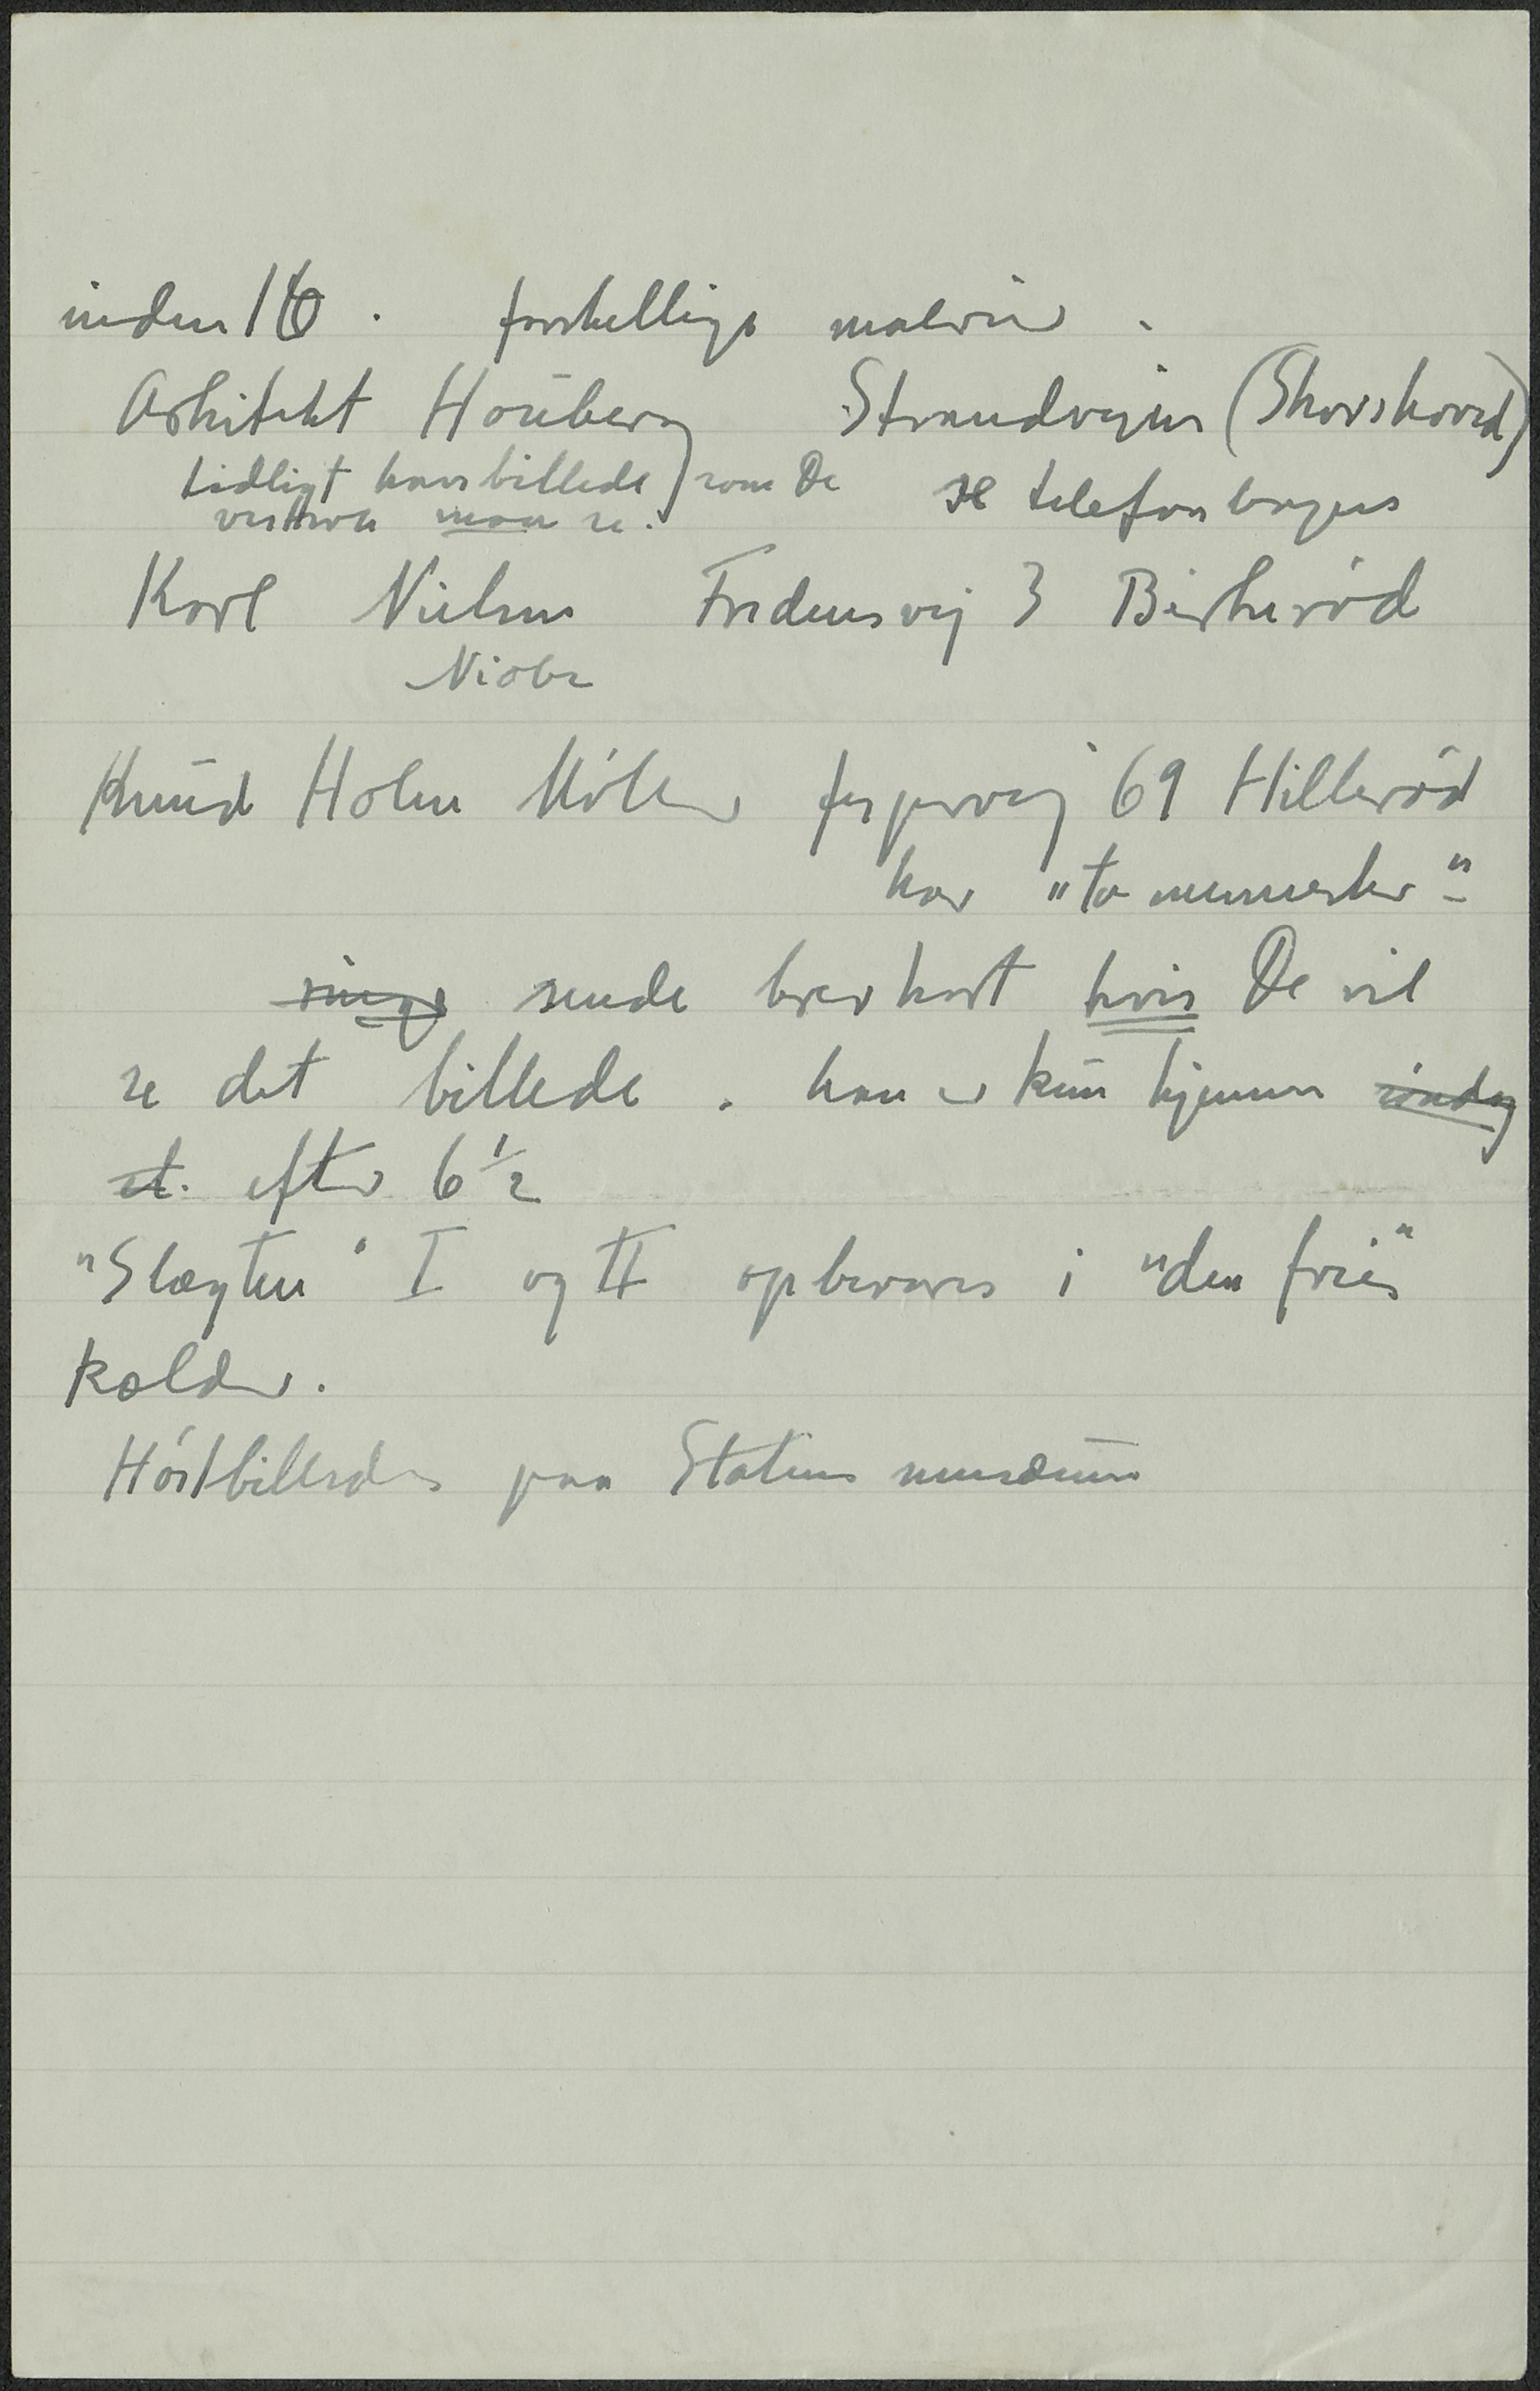 inden 16. forskellige malerier.
Arkitekt Houberg Strandvejen (Skovshoved)
tidligt havbillede som De se telefonbogen
maa se.
Karl Nielsen Fredensvej 3 Birkeröd
Niobe
Knud Holm Möller 69 Hilleröd
har "to mennesker"
ringe sende brevkort hvis De vil
se det billede. han er kun hjemme söndag
el. efter 6 ½
"Slægten" I og II opbevares i "den frie"
kælder.
Höstbilledet paa Statens museum